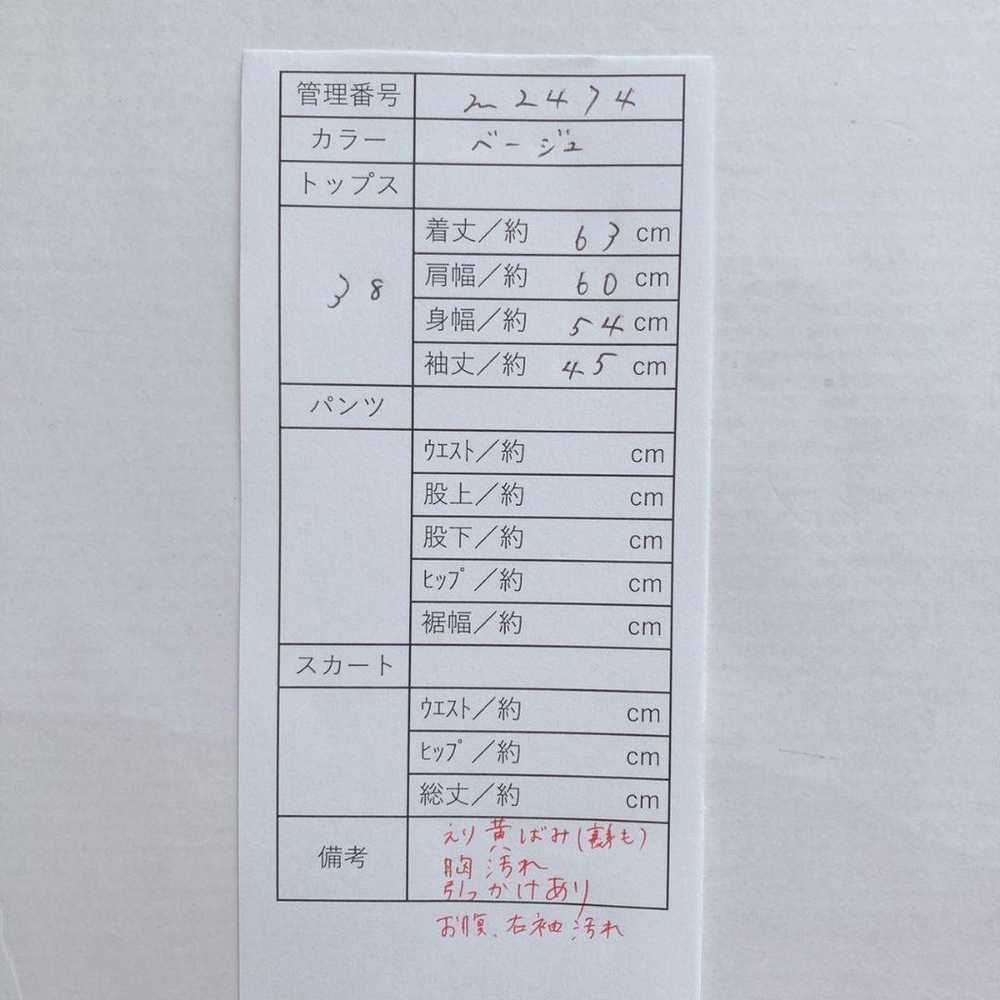 管理番号 m2474
カラー ベージュ
トップス
38
着丈／約 63 cm
肩幅／約 60 cm
身幅／約 54 cm
袖丈／約 45 cm
パンツ
ｳｴｽﾄ／約 cm
股上／約 cm
股下／約 cm
ﾋｯﾌﾟ／約 cm
裾幅／約 cm
スカート
ｳｴｽﾄ／約 cm
ﾋｯﾌﾟ／約 cm
総丈／約 cm
備考
えり黄ばみ(裏も)
胸汚れ
引っかけあり
お腹、右袖汚れ